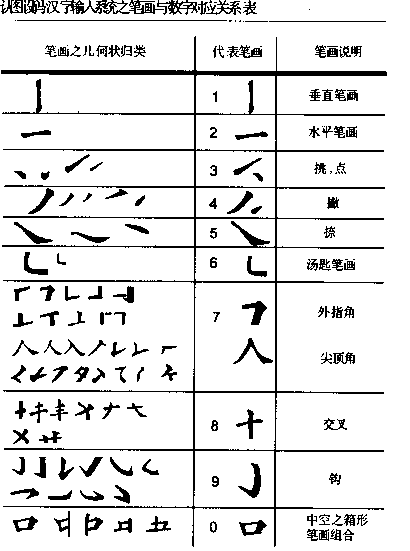 认图设码汉字输入系统之笔画与数字对应关系表
笔画之几何状归类 代表笔画 笔画说明
1 垂直笔画
2 水平笔画
3 挑.点
4 撇
5 捺
6 汤匙笔画
7 外指角
尖顶角
8 交叉
9 钩
0 中空之箱形
笔画组合